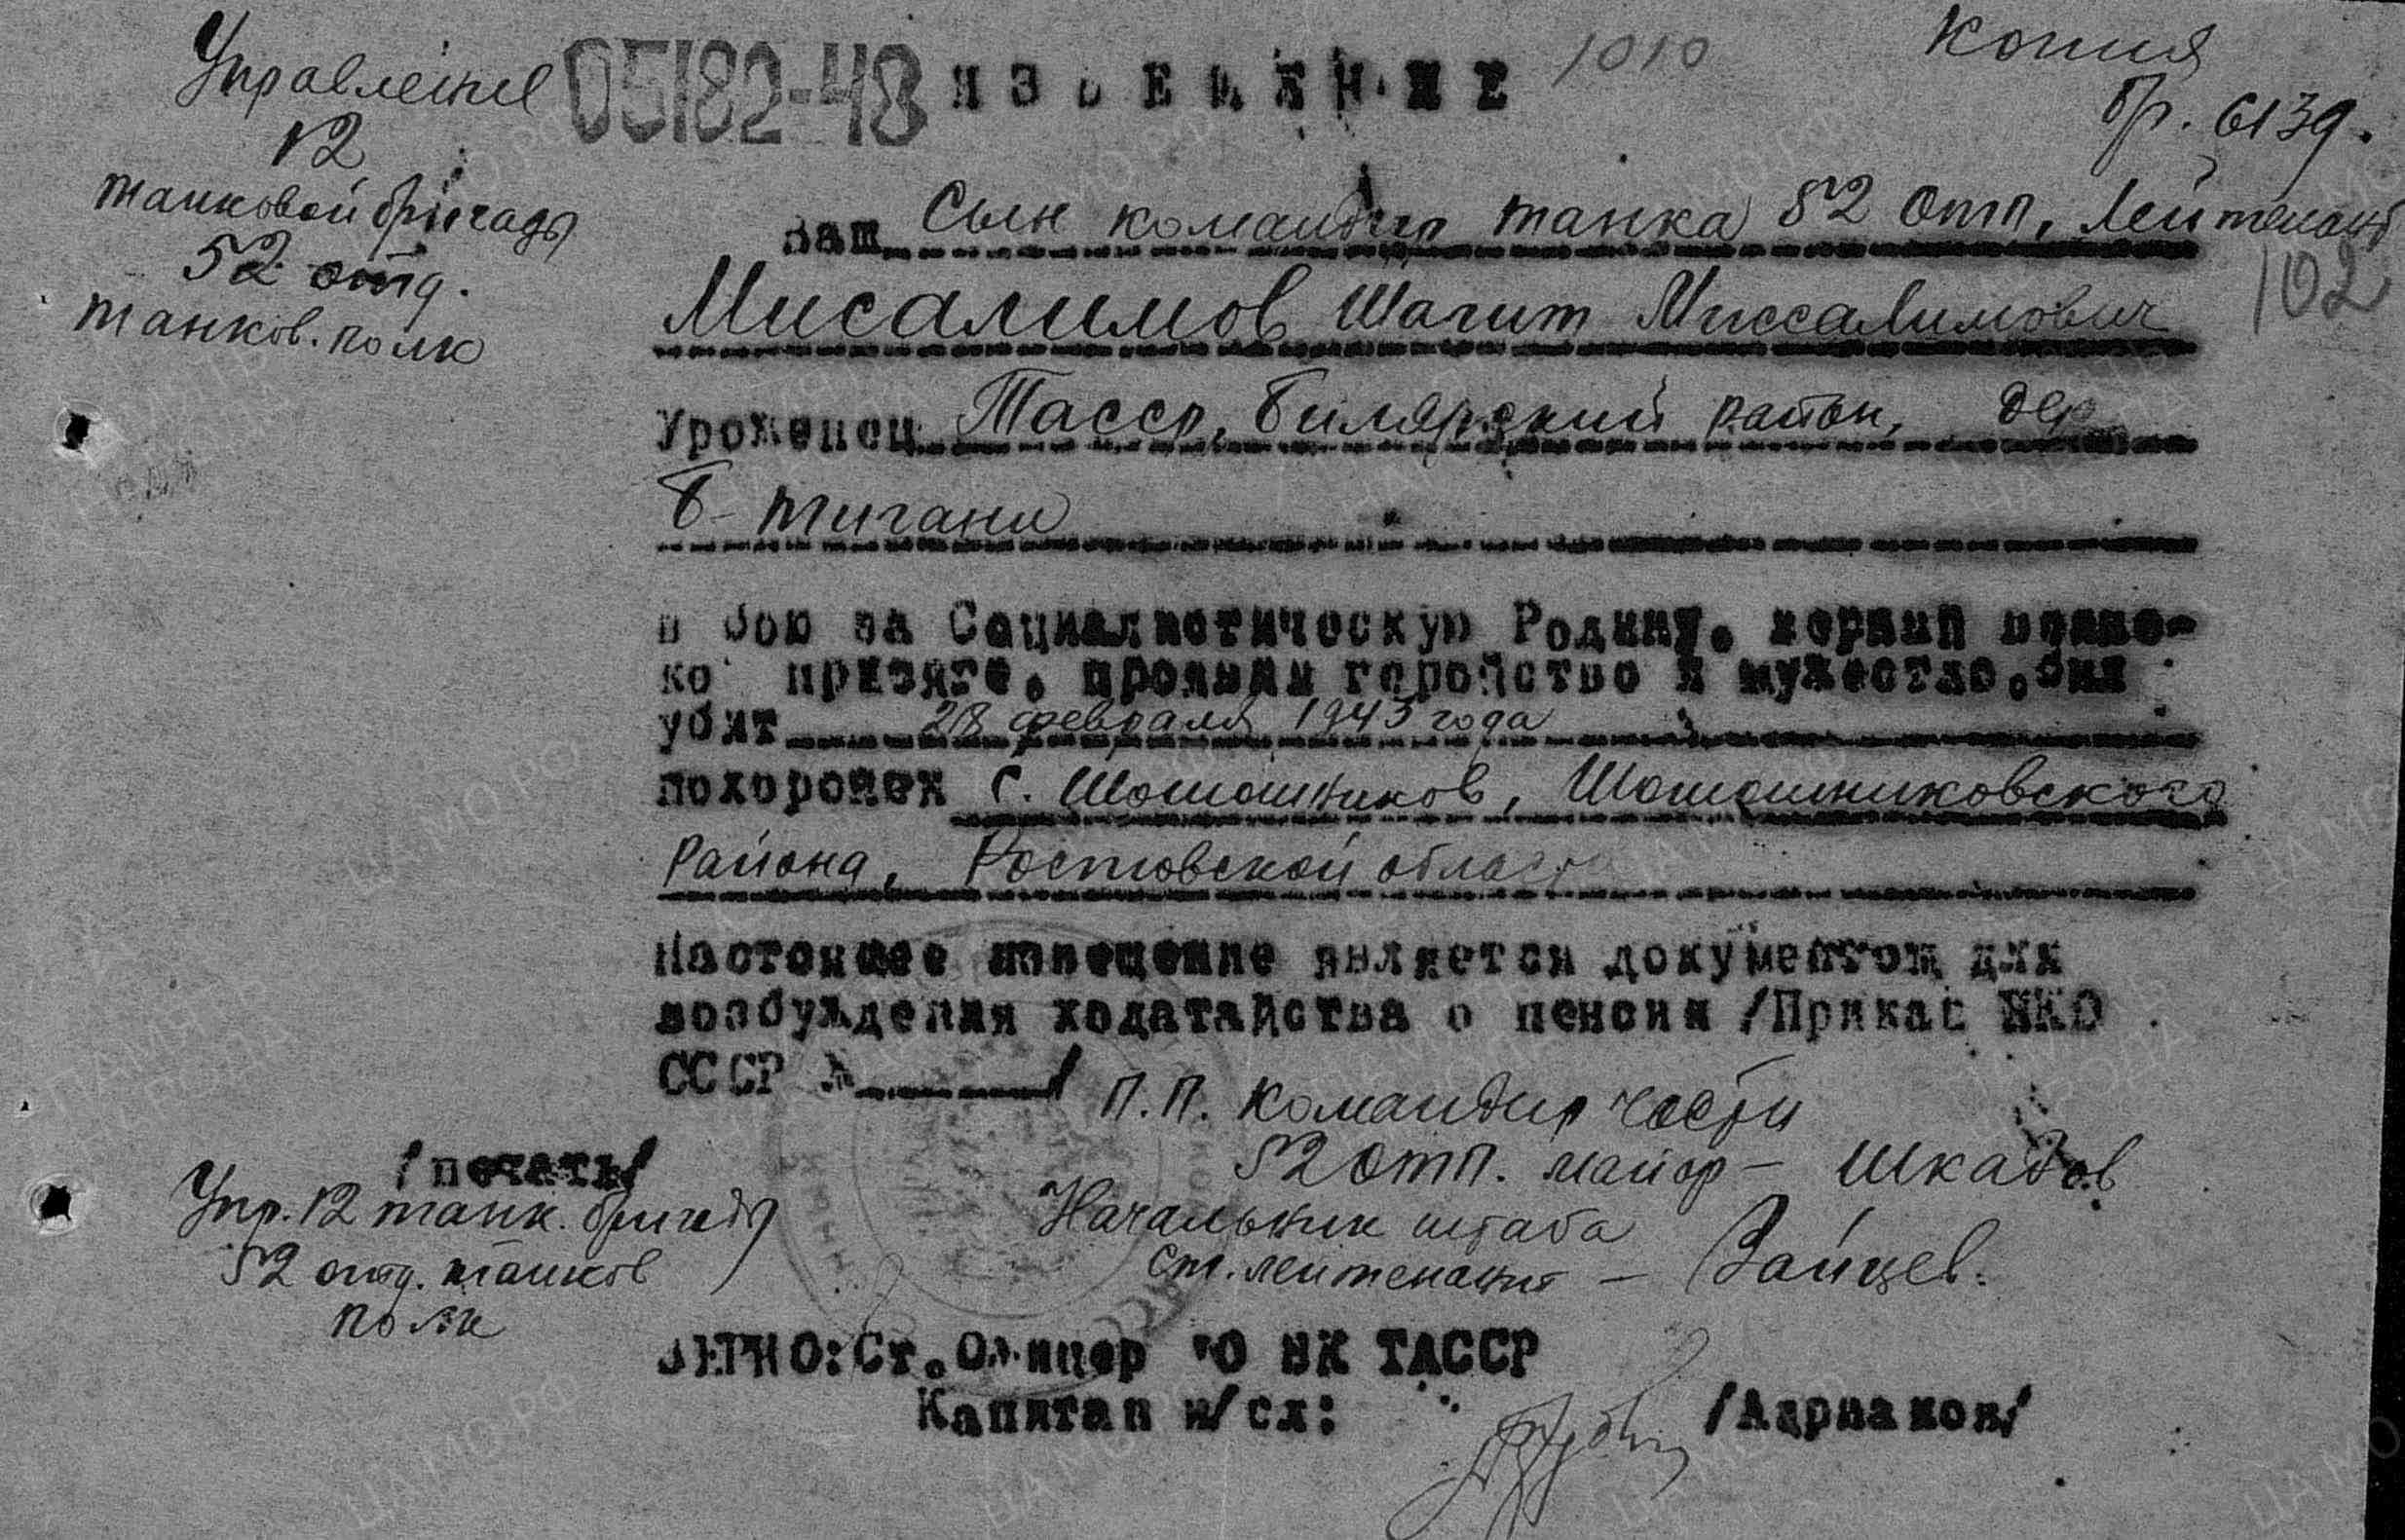 Управление
12
танковой бригады
52 отд.
танков. полк
05182-48
ИЗВЕЩЕНИЕ
1010
Копия
вр. 6139.
Ваш сын командир танка 52 отп, лейтенант
102
Мисалимов Шагит Миссалимович
Уроженец Тасср, Билярский район, дер
Б-Тигани
в бою за Социалистическую Родину, верный воинс-
ко' присяге, проявив геройство и мужество, был
убит 28 февраля 1943 года
похоронен с. Шошошников, Шошошниковского
Района, Ростовской област
Настоящее извещение является документом для
возбуждения ходатайства о пенсии /Приказ НКО
СССР № /
П.П. командир части
52 отп. майор - Шкадов
/печать/
Упр. 12 танк. бригады
52 отд. танков
полк
Начальник штаба
ст. лейтенант - Зайцев.
ВЕРНО: Ст. Офицер ВК ТАССР
Капитан и/сл: